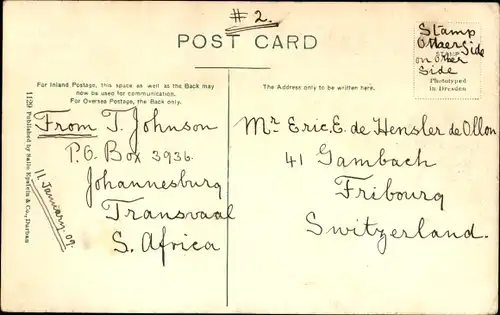 # 2.
POST CARD
Stamp
Other Side
on other
Side
Phototyped
in Dresden
For Inland Postage, this space as well as the Back may
now be used for communication.
For Overses Postage, the Back only.
The Address only to be written here.
From T. Johnson
P.O. Box 3936.
Johannesburg
Transvaal
S. Africa
11 January. 09.
1129 Published by Sallo Epstein & Co., Durban
Mr Eric. E. de Hensler de Ollon
41 Gambach
Fribourg
Switzerland.